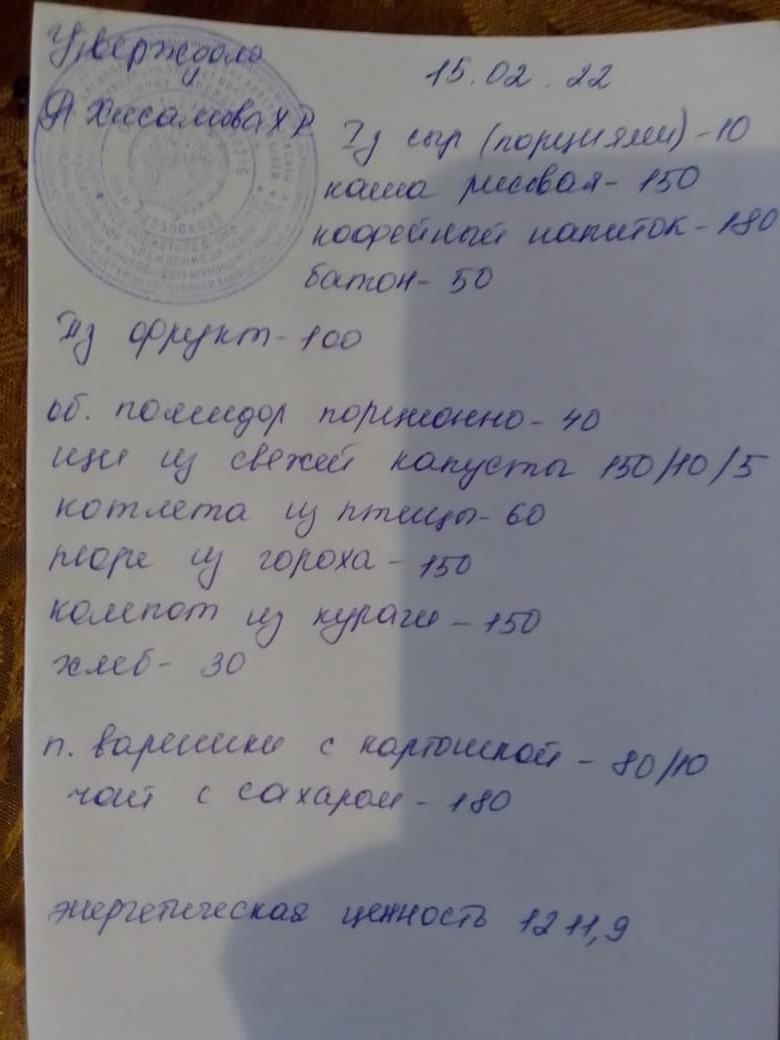 Утверждаю
15.02.22
Хисамова Х Р
Iз сыр (порциями) - 10
каша рисовая - 150
кофейный напиток - 180
батон - 50
IIз фрукт - 100
об. помидор порционно - 40
щи из свежей капусты 150/10/5
котлета из птицы - 60
пюре из гороха - 150
компот из кураги - 150
хлеб - 30
п. вареники с картошкой - 80/10
чай с сахаром - 180
энергетическая ценность 1211,9